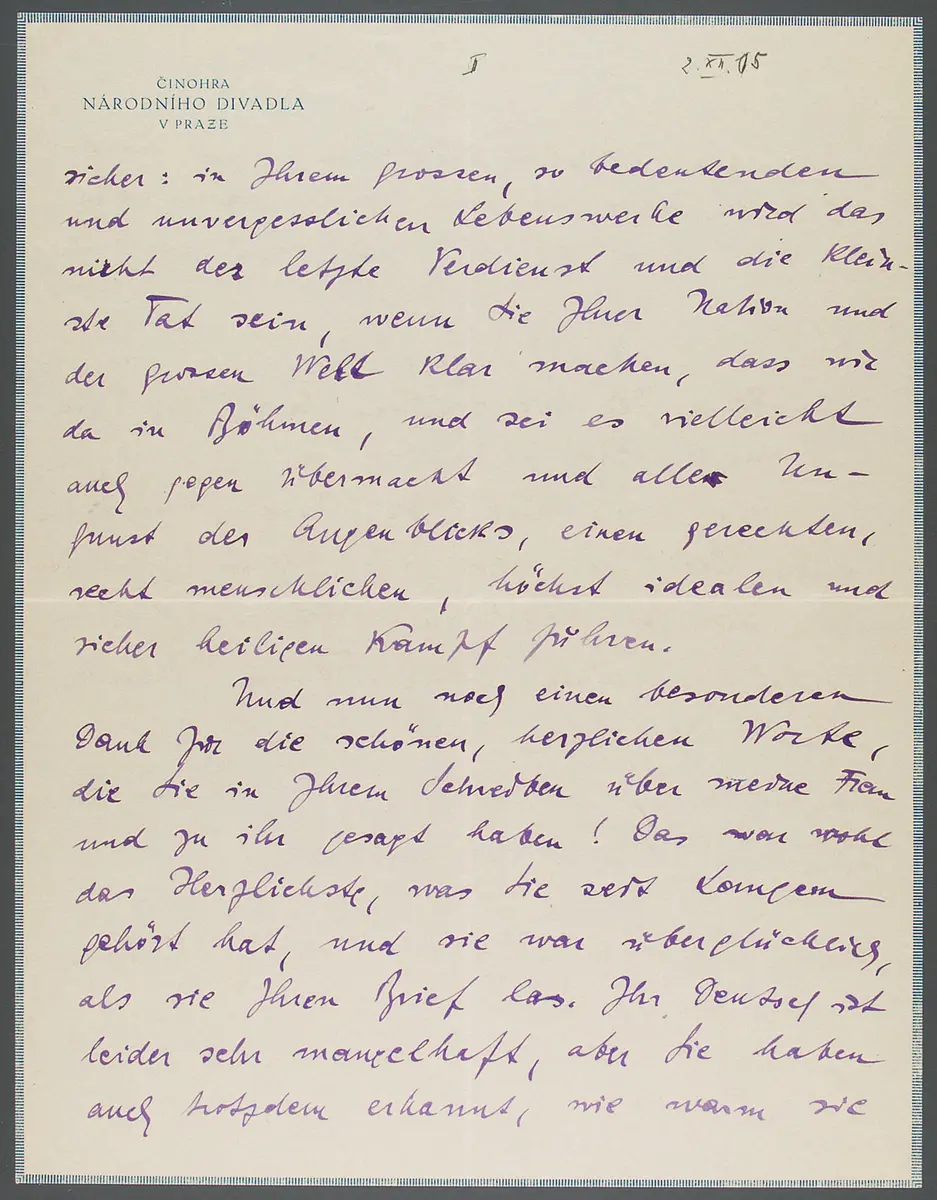 ČINOHRA
NÁRODNÍHO DIVADLA
V PRAZE
II
2. XII. 15
sicher: in Ihrem grossen, so bedeutenden
und unvergesslichen Lebenswerke wird das
nicht der letzte Verdienst und die klein-
ste Tat sein, wenn Sie Ihrer Nation und
der grossen Welt klar machen, dass wir
da in Böhmen, und sei es vielleicht
auch gegen Übermacht und alle Un-
gunst des Augenblicks, einen gerechten,
recht menschlichen, höchst idealen und
sicher heiligen Kampf führen.
Und nun noch einen besonderen
Dank für die schönen, herzlichen Worte,
die Sie in Ihrem Schreiben über meine Frau
und zu ihr gesagt haben! Das war wohl
das Herzlichste, was sie seit Langem
gehört hat, und sie war überglücklich,
als sie Ihren Brief las. Ihr Deutsch ist
leider sehr mangelhaft, aber Sie haben
auch trotzdem erkannt, wie warm sie